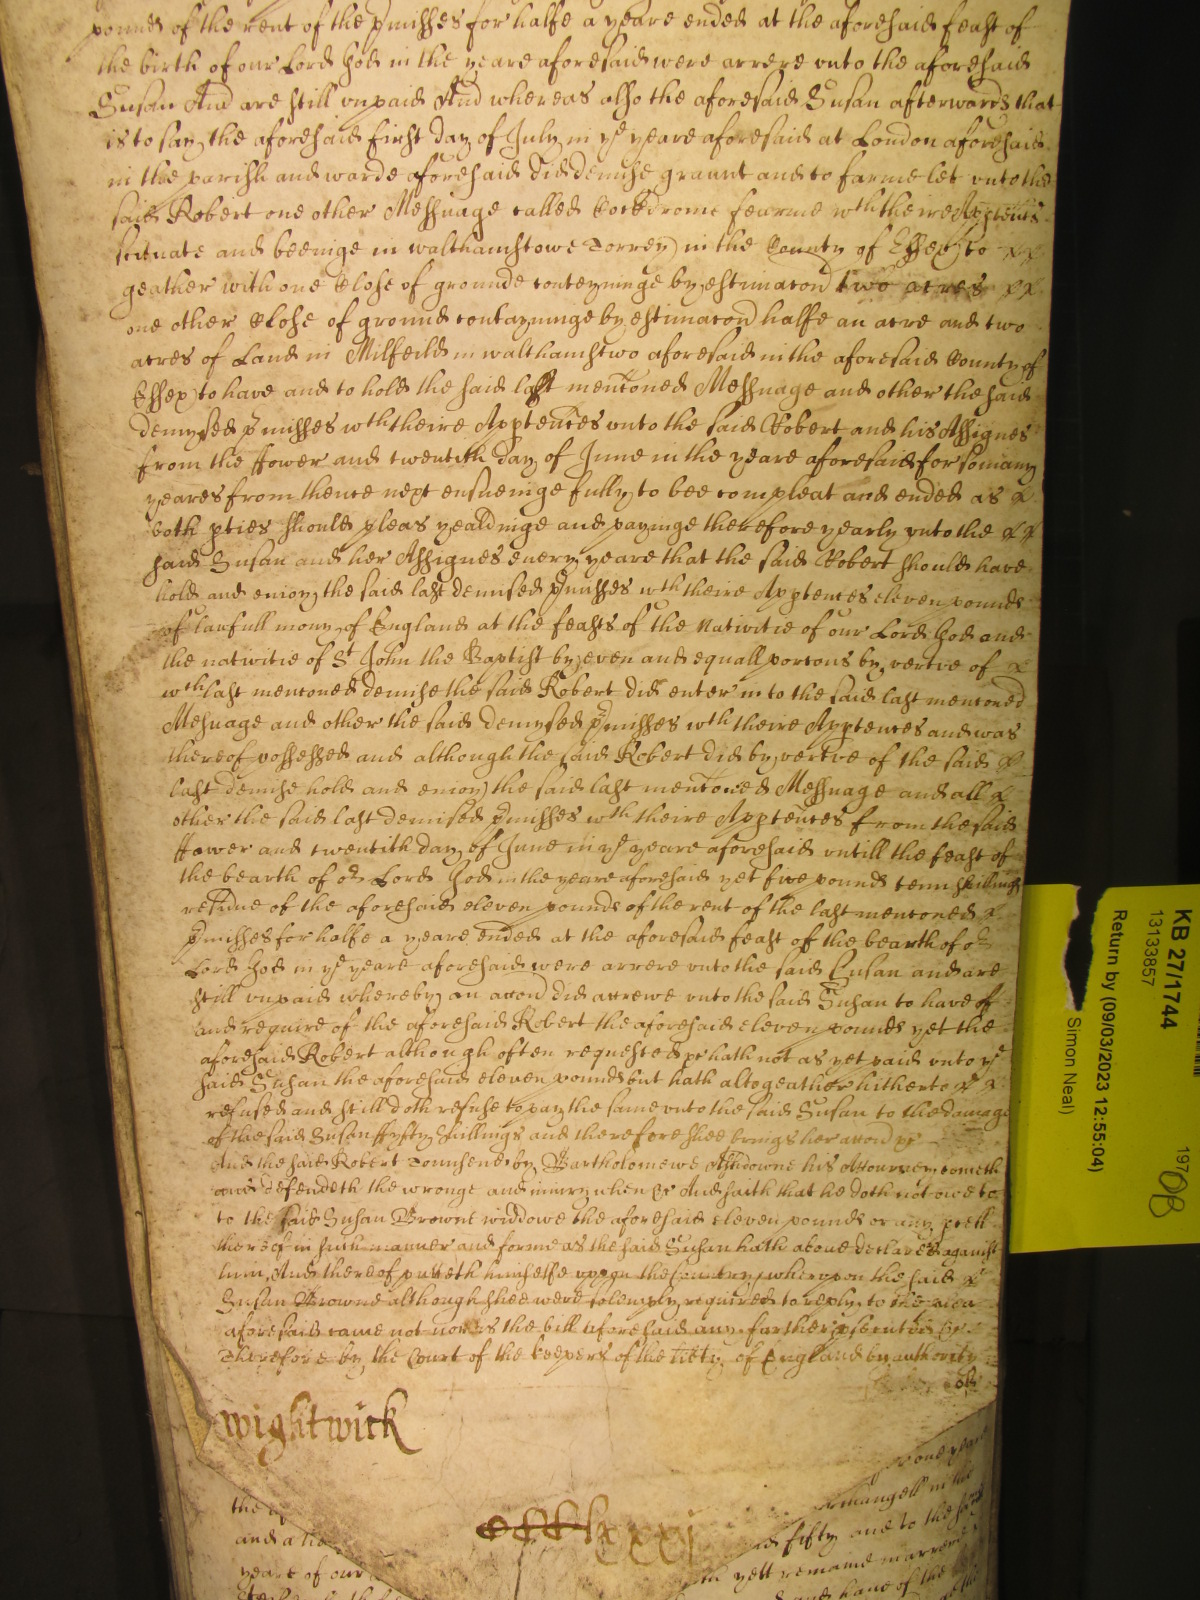 pounds of the rent of the pmisses for halfe a yeare ended at the aforesaid feast of
the birth of our Lord God in the yeare aforesaid were arrere vnto the aforesaid
Susan And are still vnpaid And whereas also the aforesaid Susan afterwards that
is to say the aforesaid first day of July in ye yeare aforesaid at London aforesaid
in the parish and warde aforesaid did demise graunt and to farme let vnto the
said Robert one other Messuage called Cockdrome fearme wth theire Apptencs
scituate and beeinge in walthamstowe Torrey in the County of Essex to
geather with one Close of grounde conteyninge by estimacon two acres
one other Close of ground contayninge by estimacon halfe an acre and two
acres of Land in Milfeild in walthamstwo aforesaid in the aforesaid County of
Essex to have and to hold the said last menconed Messuage and other the said
demysed pmisses wth theire Apptences vnto the said Robert and his Assignes
from the ffower and twentith day of June in the yeare aforesaid for so many
yeares from thence next ensueinge fully to bee compleat and ended as
both pties should pleas yealdinge and payinge therefore yearly vnto the
said Susan and her Assignes euery yeare that the said Robert should have
hold and enioy the said last demised pmisses wth theire Apptences eleven pounds
of lawfull mony of England at the feasts of the Nativitie of our Lord God and
the nativitie of St John the Baptist by even and equall porcons by vertve of
wth last menconed demise the said Robert did enter in to the said last menconed
Mesuage and other the said demysed pmisses wth theire Apptences and was
thereof possessed and although the said Robert did by vertve of the said
last demise hold and enioy the said last menconed Messuage and all
other the said last demised pmisses wth theire Apptences from the said
ffower and twentith day of June in ye yeare aforesaid vntill the feast of
the bearth of or Lord God in the yeare aforesaid yet five pounds tenn shillings
residue of the aforesaid eleven pounds of the rent of the last menconed
pmisses for halfe a yeare ended at the aforesaid feast of the bearth of or
Lord God in ye yeare aforesaid were arrere vnto the said Susan and are
still vnpaid whereby an accon did accrewe vnto the said Susan to have of
and require of the aforesaid Robert the aforesaid eleven pounds yet the
aforesaid Robert although often requested &c hath not as yet paid vnto ye
said Susan the aforesaid eleven pounds but hath altogeather hitherto
refused and still doth refuse to pay the same vnto the said Susan to the damage
of the said Susan ffyfty shillings and therefore shee brings her accon &c
And the said Robert Townsend by Bartholomewe Ashdowne his Attourney cometh
and defendeth the wronge and iniury when &c And saith that he doth not owe to
to the said Susan Browne widdowe the aforesaid eleven pounds or any pcell
thereof in such manner and forme as the said Susan hath aboue declared against
him, And thereof putteth himselfe vppon the Country whervpon the said
Susan Browne although shee were solemply required to reply to the plea
aforesaid came not nor is the bill aforesaid any further psecuted &c
Therefore by the Court of the keepers of the liberty of England by authority
of
wightwick
the
and a
yeare of our
one yeare
in the
fifty one to the said
yett remaine in arrere
and haue of the
KB 27/1744
13133857
Return by (09/03/2023 12:55:04)
Simon Neal)
197